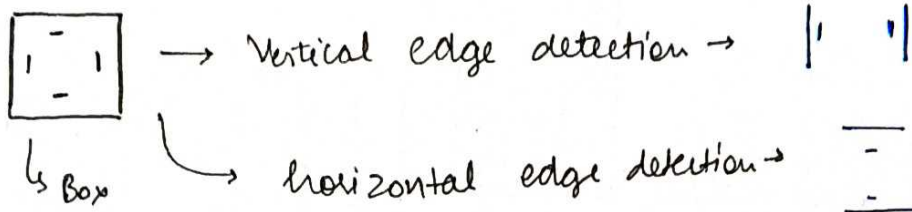 → Vertical edge detection →
↳ Box
→ horizontal edge detection →